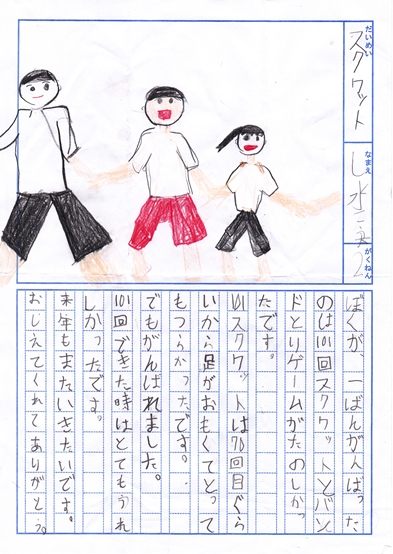 だいめい
スクワット
なまえ
し水
がくねん
2
ぼくが、一ばんがんばった
のは101回スクワットとバン
ドとりゲームがたのしかっ
たです。
101スクワットは70回目ぐら
いから足がおもくてとって
もつらかったです。
でもがんばれました。
101回できた時はとてもうれ
しかったです。
来年もまたいきたいです。
おしえてくれてありがとう。